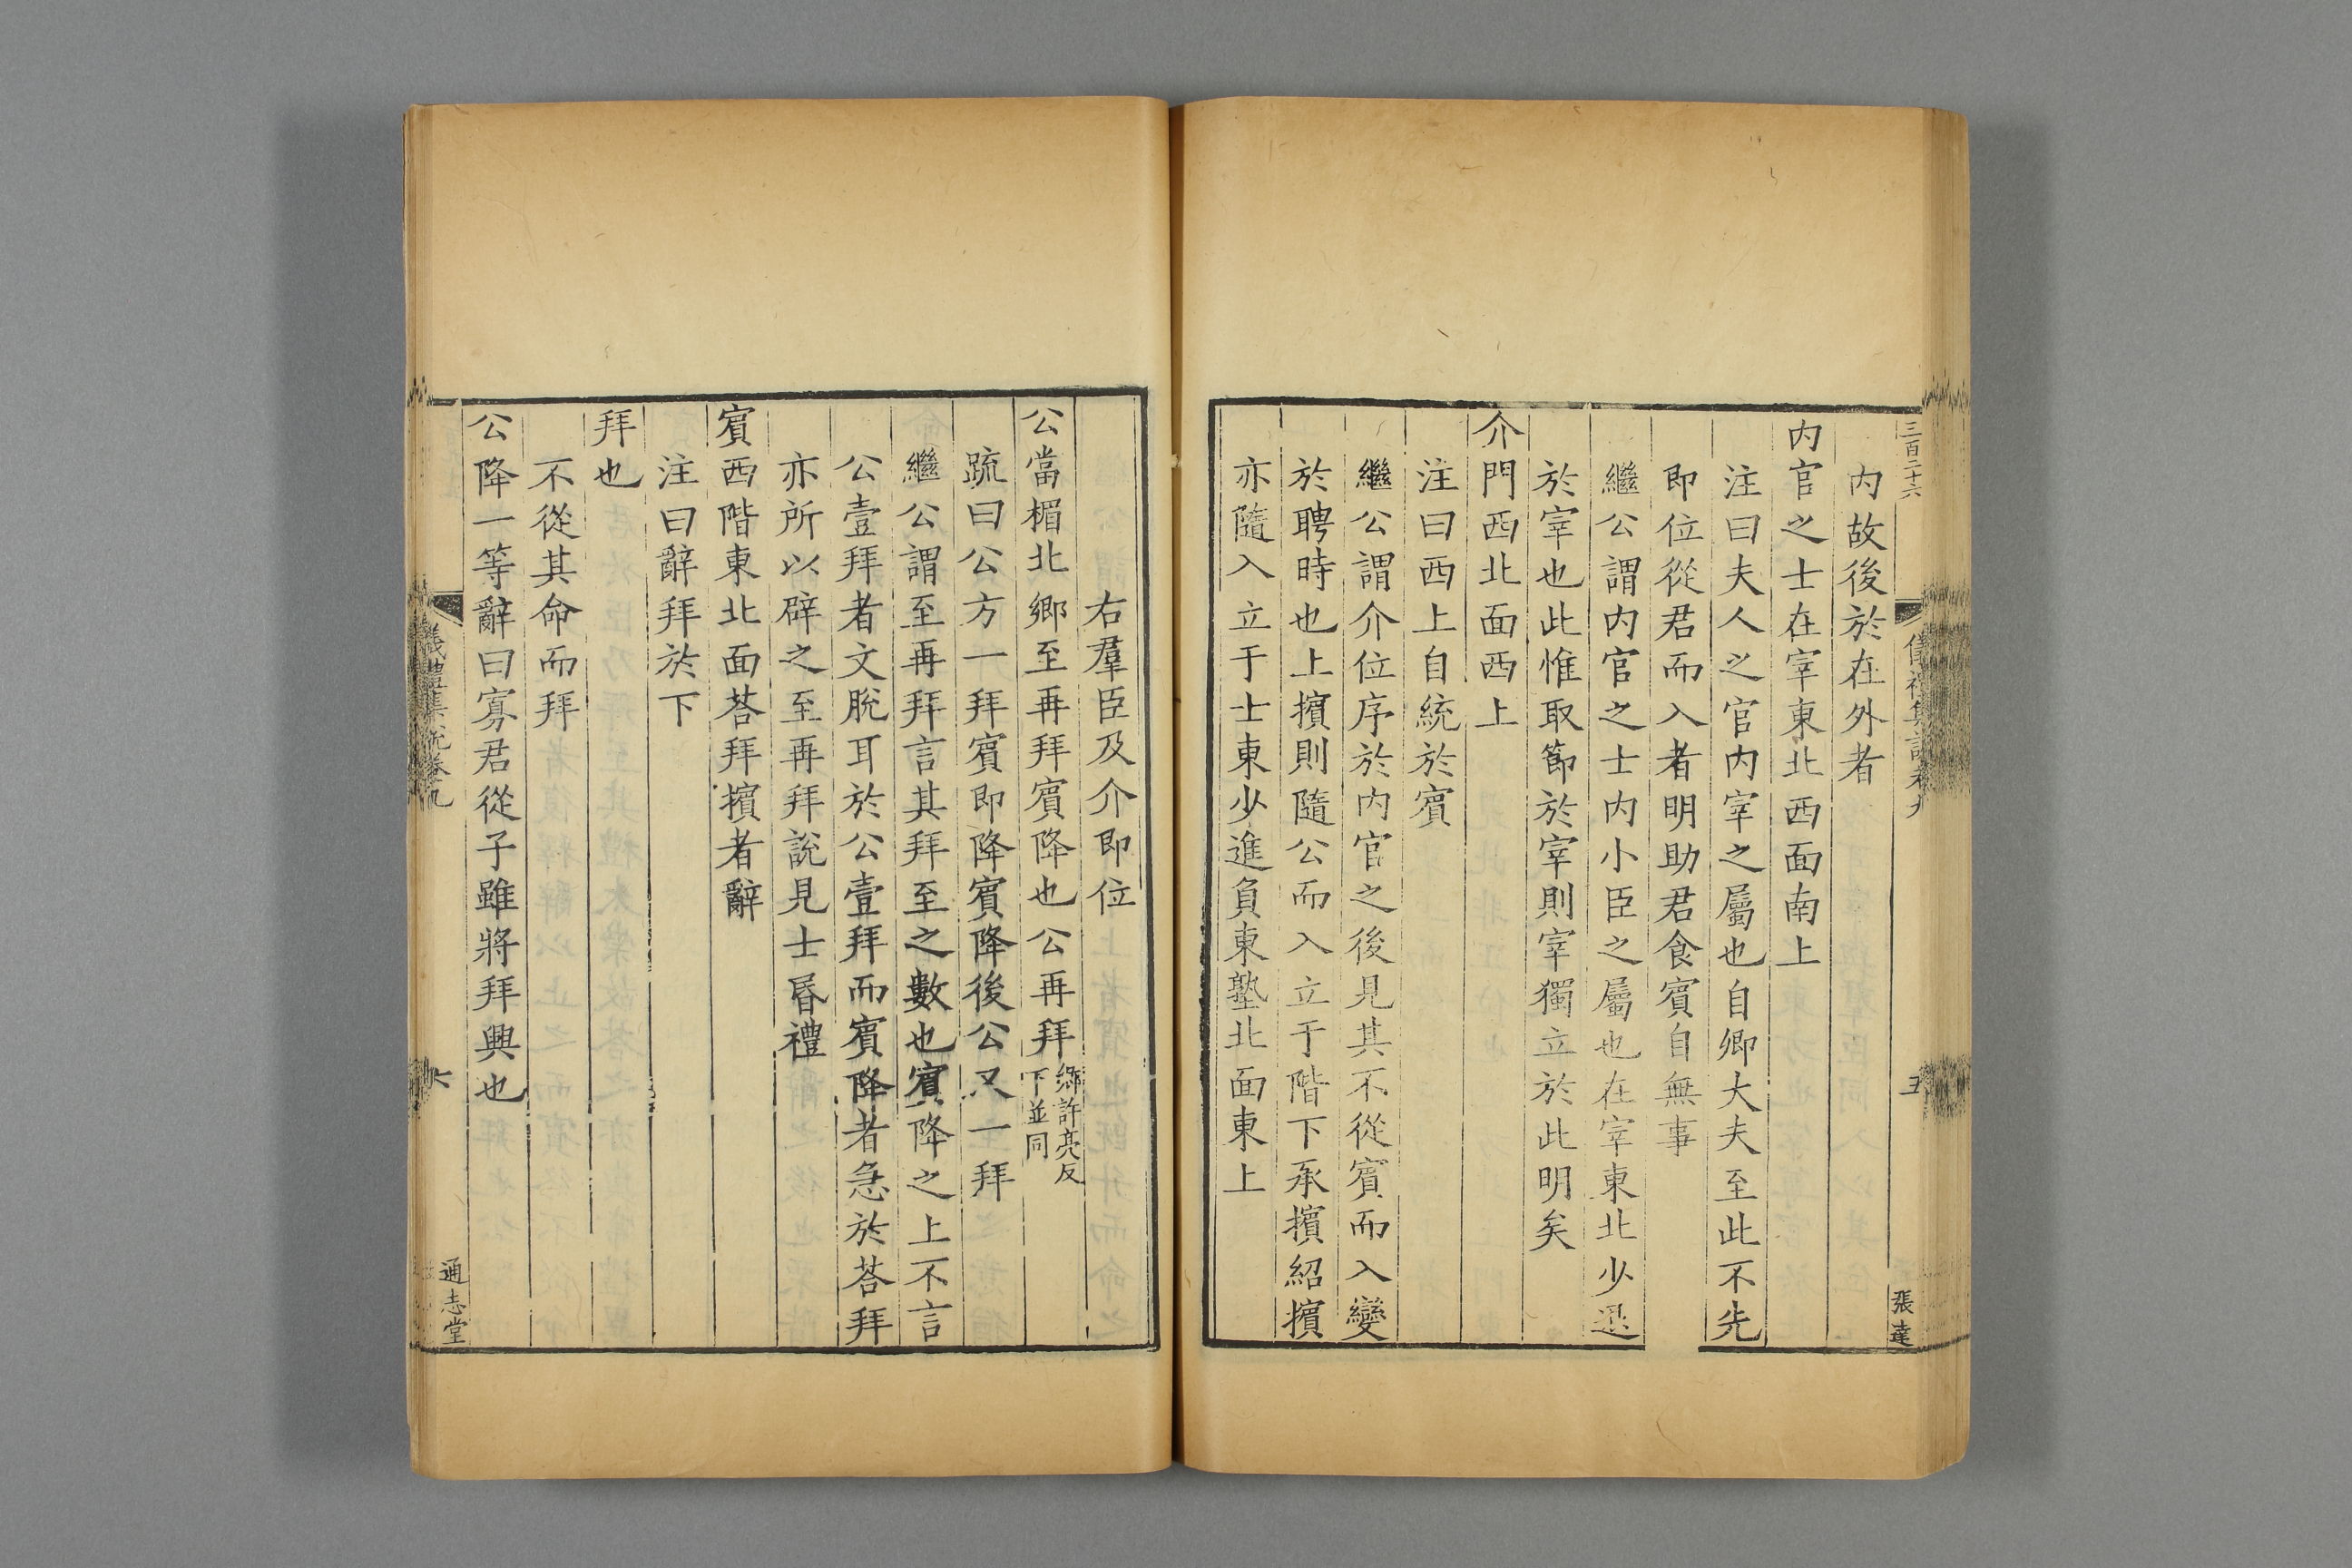 三百二十六
儀禮集說卷九
五
張達
内故後於在外者
内官之士在宰東北西面南上
注曰夫人之官内宰之屬也自卿大夫至此不先
即位從君而入者明助君食賔自無事
繼公謂内官之士内小臣之屬也在宰東北少退
於宰也此惟取節於宰則宰獨立於此明矣
介門西北面西上
注曰西上自統於賔
繼公謂介位序於内官之後見其不從賔而入變
於聘時也上擯則隨公而入立于階下承擯紹擯
亦隨入立于士東少進負東塾北面東上
右羣臣及介即位
公當楣北鄉至再拜賔降也公再拜鄉許亮反下並同
疏曰公方一拜賔即降賔降後公又一拜
繼公謂至再拜言其拜至之數也賔降之上不言
公壹拜者文脫耳於公壹拜而賔降者急於荅拜
亦所以辟之至再拜說見士昬禮
賔西階東北面荅拜擯者辭
注曰辭拜於下
拜也
不從其命而拜
公降一等辭曰寡君從子雖將拜興也
儀禮集說卷九
六
通志堂